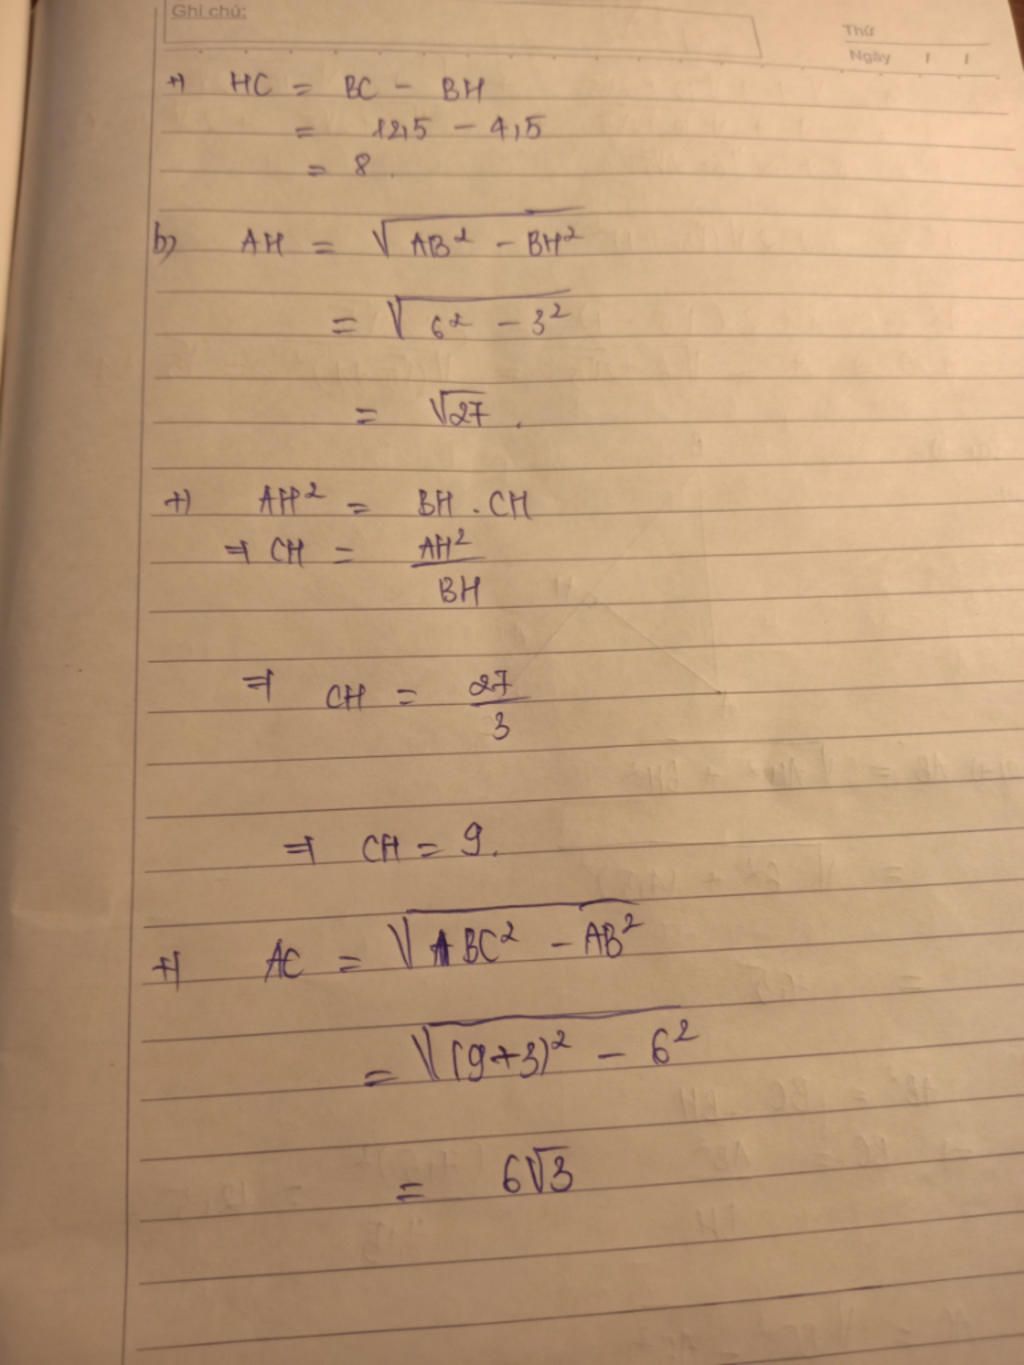 Ghi chú:
Thứ
Ngày / /
+) HC = BC - BH
= 12,5 - 4,5
= 8.
b) AH = √(AB² - BH²)
= √(6² - 3²)
= √27.
+) AH² = BH . CH
⇒ CH = AH²/BH
⇒ CH = 27/3
⇒ CH = 9.
+) AC = √(BC² - AB²)
= √((9+3)² - 6²)
= 6√3